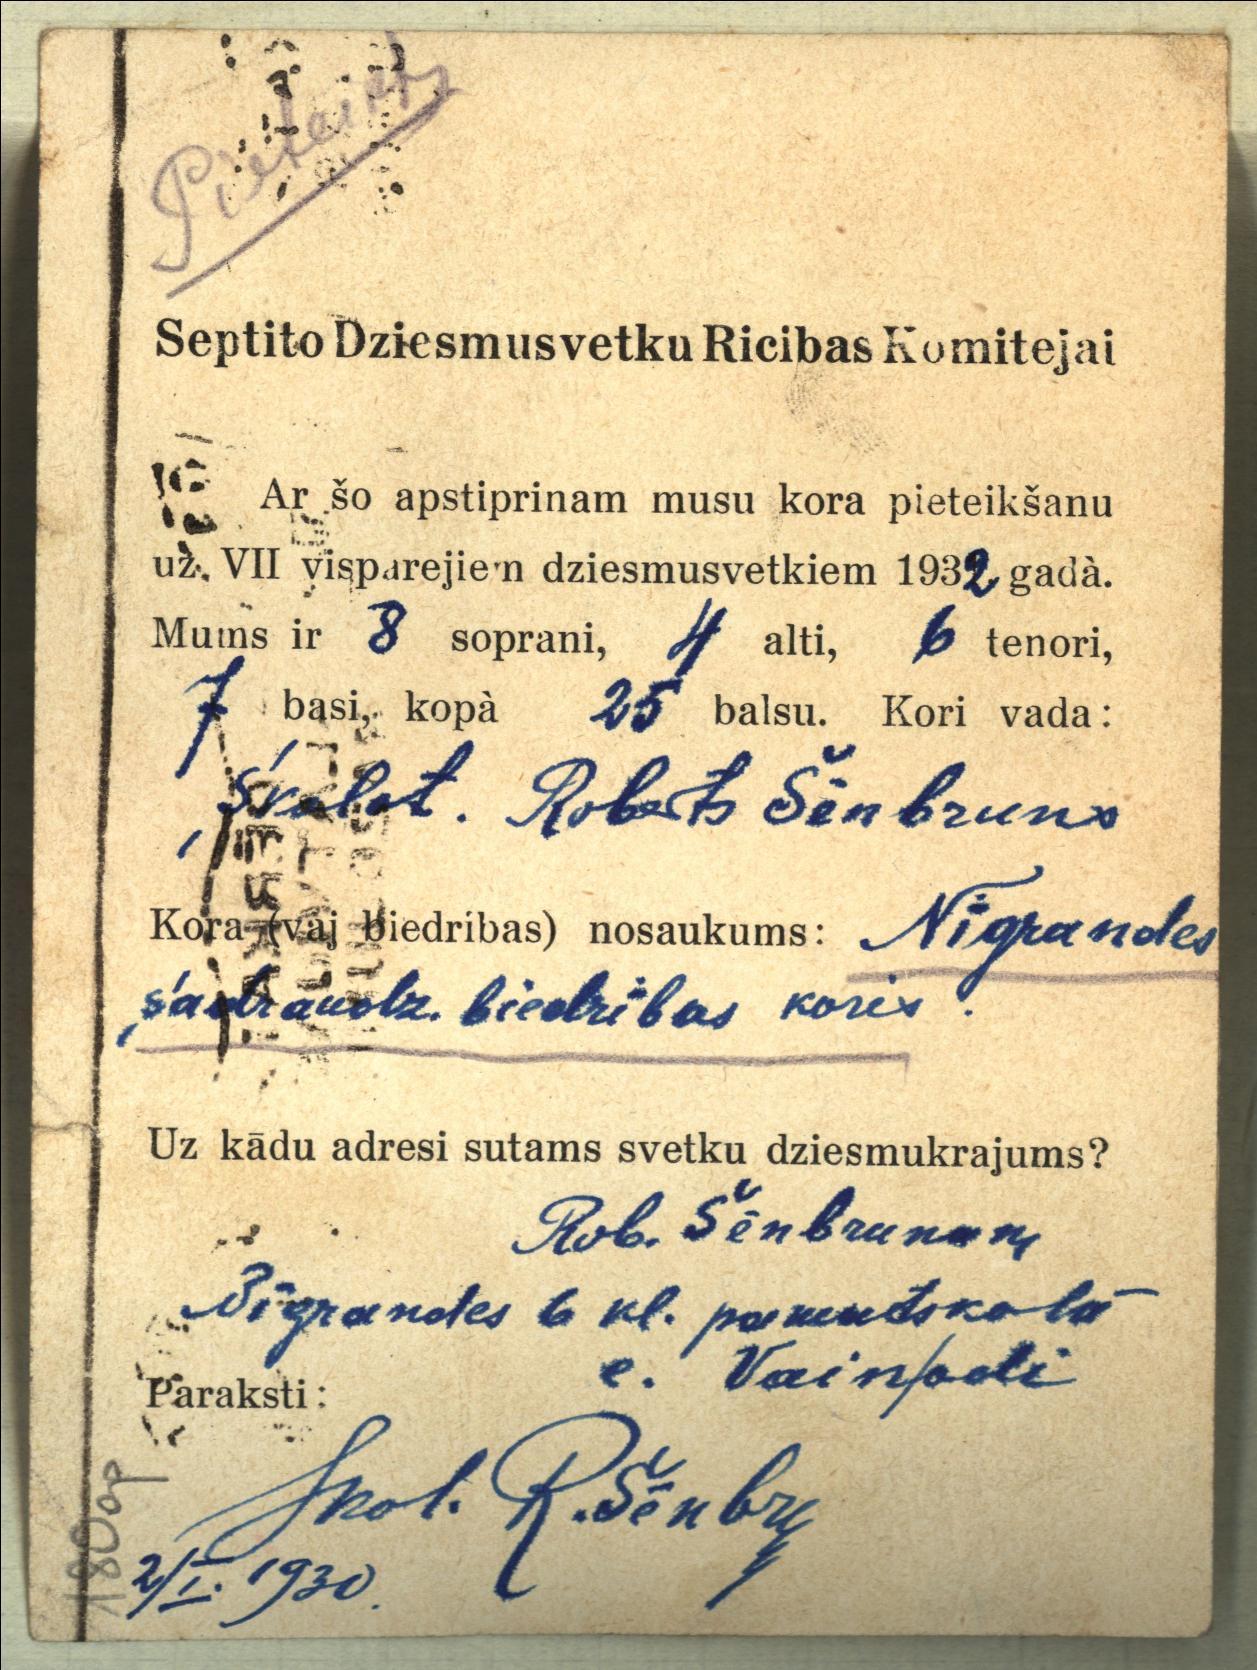 Pieteikts
Septito Dziesmusvetku Ricibas Komitejai
Ar šo apstiprinam musu kora pieteikšanu
uz VII visparejiem dziesmusvetkiem 1932 gadà.
Mums ir 8 soprani, 4 alti, 6 tenori,
7 basi, kopà 25 balsu. Kori vada:
Skolot. Roberts Šēnbruns
Kora (vaj biedribas) nosaukums: Nīgrandes
sadraudz. biedrības koris.
Uz kādu adresi sutams svetku dziesmukrajums?
Rob. Šēnbrunam
Nīgrandes 6 kl. pamatskolā
c. Vaiņodi
Paraksti:
Skol. R. Šēnbr
2/I. 1930.